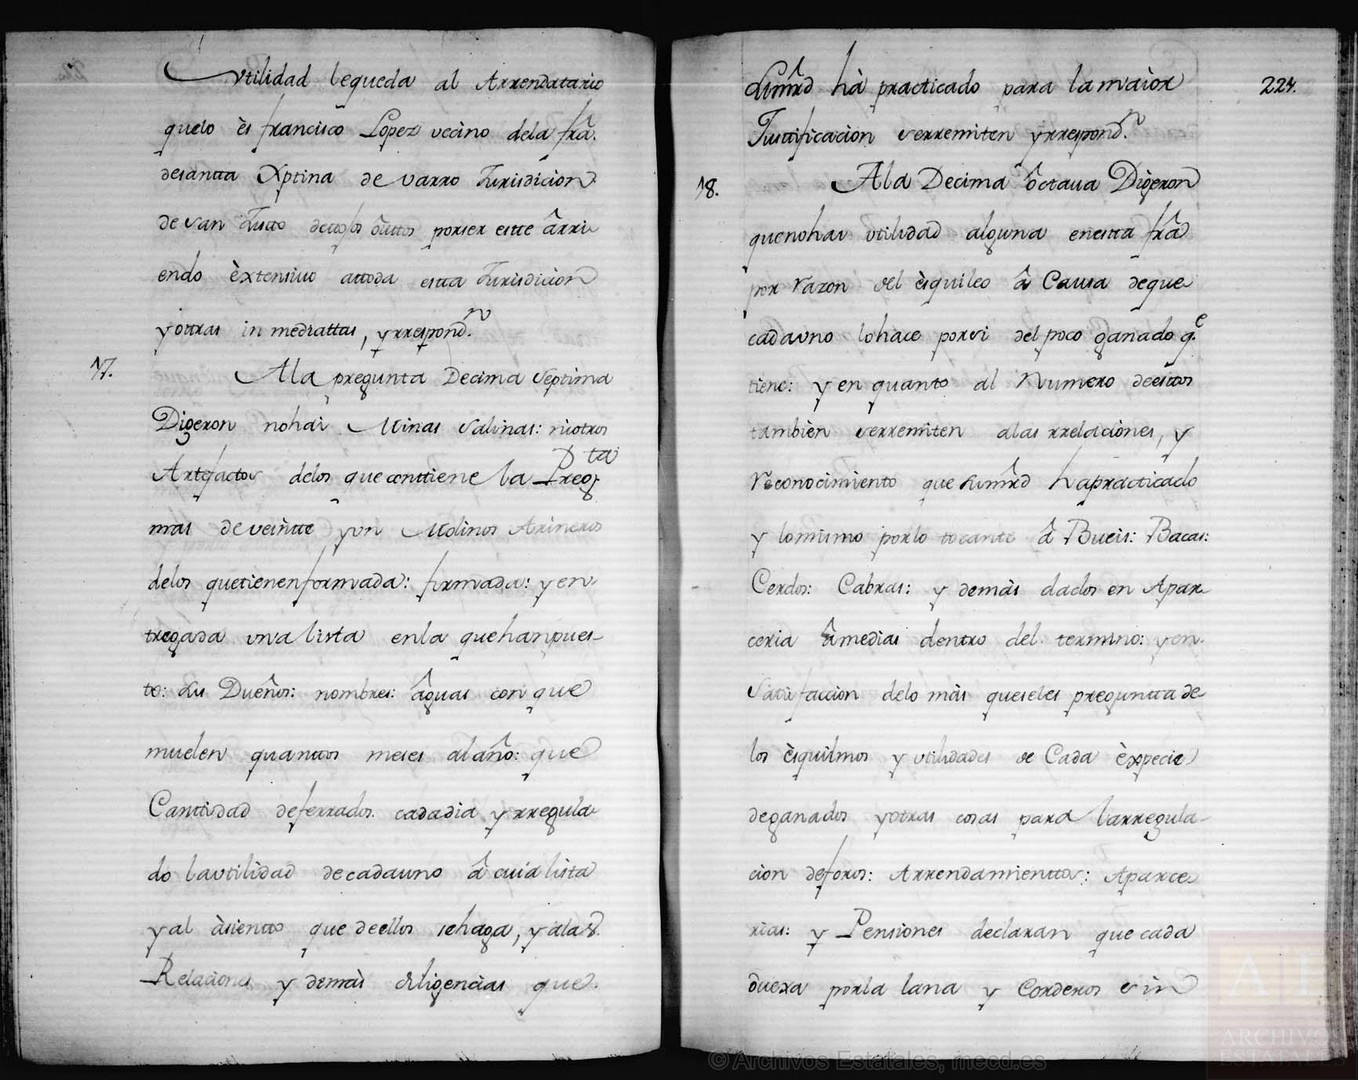 Vtilidad lequeda al Arrendatario
quelo ès francisco Lopez vecino dela frâ.
desantta Xptina de varro Jurisdicion
de san Justo dettoslos ôuttos porser estte ârri
endo èxtensiuo attoda estta Jurisdicion
y ottras inmediattas, y rrespond.n
17. Ala pregunta Decima Septima
Digeron nohai Minas Salinas: niotros
Artefactos delos que conttiene la Preg.ta
mas de veintte yun Molinos Arineros
delos quetienenformada: firmada: yen-
tregada vna lista enla quehanpues-
to: sus Dueños: nombres: âguas con que
muelen quanttos meses alaño: que
Canttidad deferrados cadadia y rregula-
do lavtilidad decadauno â cuia lista
y al àsientto que deellos sehaga, y àlas
Relaciones y demàs diligencias que
224.
dumrd hà practicado para lamaior
Justtificacion serremiten y rrespond.n
18. Ala Decima ôctaua Digeron
quenohai vtilidad alguna enestta frâ
por razon del èsquileo â Causa deque
cadauno lohace porsi del poco ganado q.e
tiene: y en quantto al Numero deesttos
tambièn serremiten alas rrelaciones, y
reconocimiento que sumrd hapracticado
y lomismo porlo tocante â Bueis: Bacas:
Cerdos: Cabras: y demàs dados en Apar
ceria âmedias dentro del termino: yen
Satisfaccion delo màs queseles preguntta de
los èsquilmos y vtilidades de Cada èxpecie
deganados yotras cosas para larregula-
cion deforos: Arrendamienttos: Aparce
rias: y Pensiones declaran que cada
duexa porla lana y Corderos sin
© Archivos Estatales, mecd.es
ARCHIVOS
ESTATALES